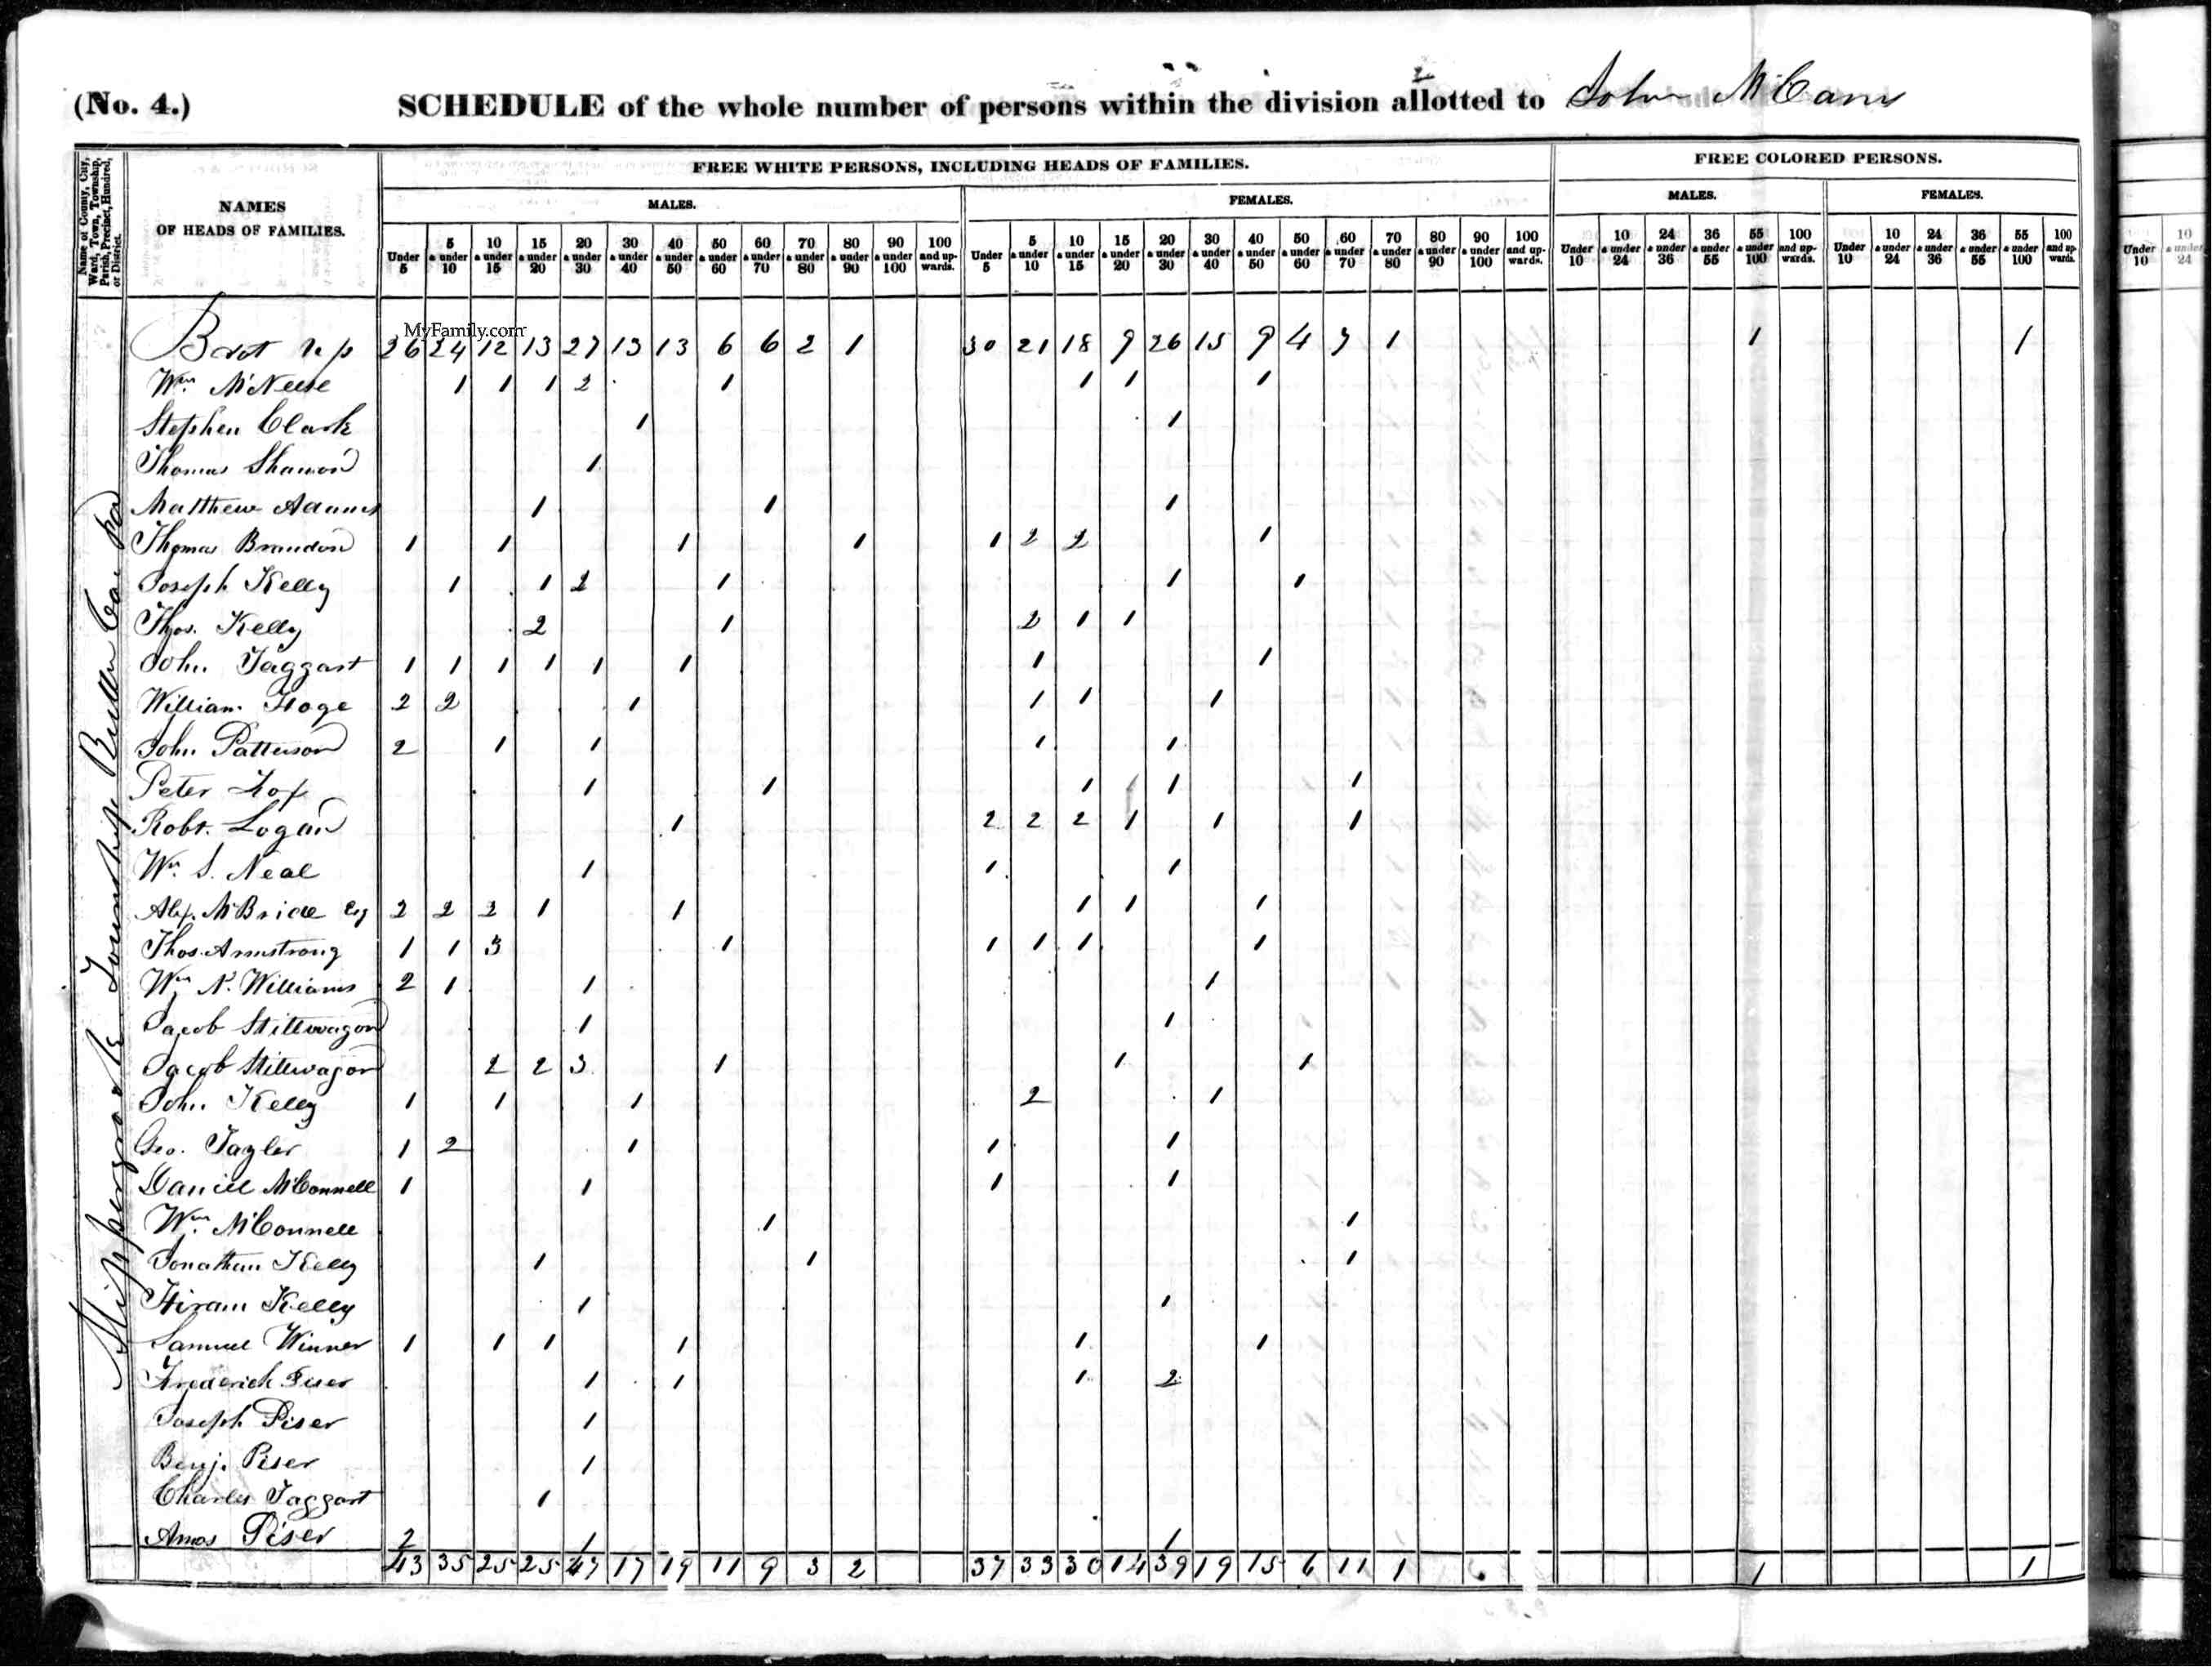 (No. 4.) SCHEDULE of the whole number of persons within the division allotted to John McCann
Name of County, City, Ward, Town, Township, Parish, Precinct, Hundred, or District.
NAMES OF HEADS OF FAMILIES.
FREE WHITE PERSONS, INCLUDING HEADS OF FAMILIES.
FREE COLORED PERSONS.
MALES. FEMALES. MALES. FEMALES.
Under 5 | 5 & under 10 | 10 & under 15 | 15 & under 20 | 20 & under 30 | 30 & under 40 | 40 & under 50 | 50 & under 60 | 60 & under 70 | 70 & under 80 | 80 & under 90 | 90 & under 100 | 100 and upwards. | Under 5 | 5 & under 10 | 10 & under 15 | 15 & under 20 | 20 & under 30 | 30 & under 40 | 40 & under 50 | 50 & under 60 | 60 & under 70 | 70 & under 80 | 80 & under 90 | 90 & under 100 | 100 and upwards. | Under 10 | 10 & under 24 | 24 & under 36 | 36 & under 55 | 55 & under 100 | 100 and upwards. | Under 10 | 10 & under 24 | 24 & under 36 | 36 & under 55 | 55 & under 100 | 100 and upwards.
Under 10 | 10 & under 24
MyFamily.com
Slipperyrock Township Butler Co. Pa
Brot up 26 24 12 13 27 13 13 6 6 2 1 30 21 18 9 26 15 9 4 7 1 1 1
Wm McNeese 1 1 1 2 1 1 1 1
Stephen Clark 1 1
Thomas Shannon 1
Matthew Adams 1 1 1
Thomas Brandon 1 1 1 1 1 2 2 1
Joseph Kelly 1 1 2 1 1 1
Thos. Kelly 2 1 2 1 1
John Taggart 1 1 1 1 1 1 1 1
William Hoge 2 2 1 1 1 1
John Patterson 2 1 1 1 1
Peter 1 1 1 1 1
Robt. Logan 1 2 2 2 1 1 1
Wm. S. Neal 1 1 1
Alex. McBride Esq 2 2 2 1 1 1 1 1
Thos. Armstrong 1 1 3 1 1 1 1 1
Wm N. Williams 2 1 1 1
Jacob Stillwagon 1 1
Jacob Stillwagon 2 2 3 1 1 1
John Kelly 1 1 1 2 1
Geo. Tayler 1 2 1 1 1
Daniel McConnell 1 1 1 1
Wm McConnell 1 1
Jonathan Kelly 1 1 1
Hiram Kelly 1 1
Samuel Winner 1 1 1 1 1 1
Frederick Piser 1 1 1 2
Joseph Piser 1
Benj. Piser 1
Charles Taggart 1
Amos Piser 2 1 1
43 35 25 25 47 17 19 11 9 3 2 37 33 30 14 39 19 15 6 11 1 1 1